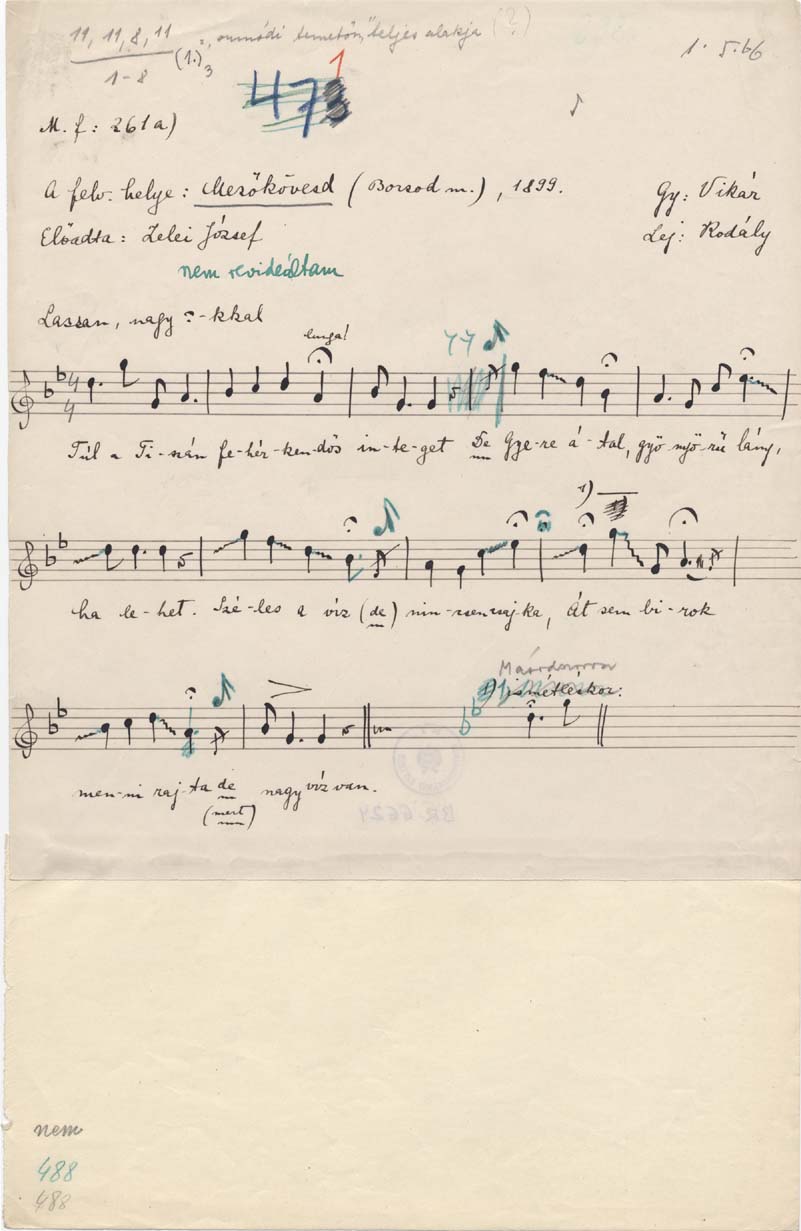 11, 11, 8, 11 (1.)3 "ommódi temetőn" teljes alakja (?)
1-8
1. 5.66
1
473
M. f: 261a)
A felv. helye: Mezőkövesd (Borsod m.), 1899. Gy: Vikár
Előadta: Zelei József Lej: Kodály
nem revideáltam
Lassan, nagy 𝄐-kkal
lunga!
44
Túl a Ti-szán fe-hér-ken-dős in-te-get De Gye-re á-tal, gyö-nyö-rű lány,
1)
ha le-het. Szé-les a víz (de) nin-csen csajka, Át sem bi-rok
Másodszorra
1) ismétléskor:
men-ni raj-ta de nagy víz van.
(mert)
BR 6624
nem
488
488